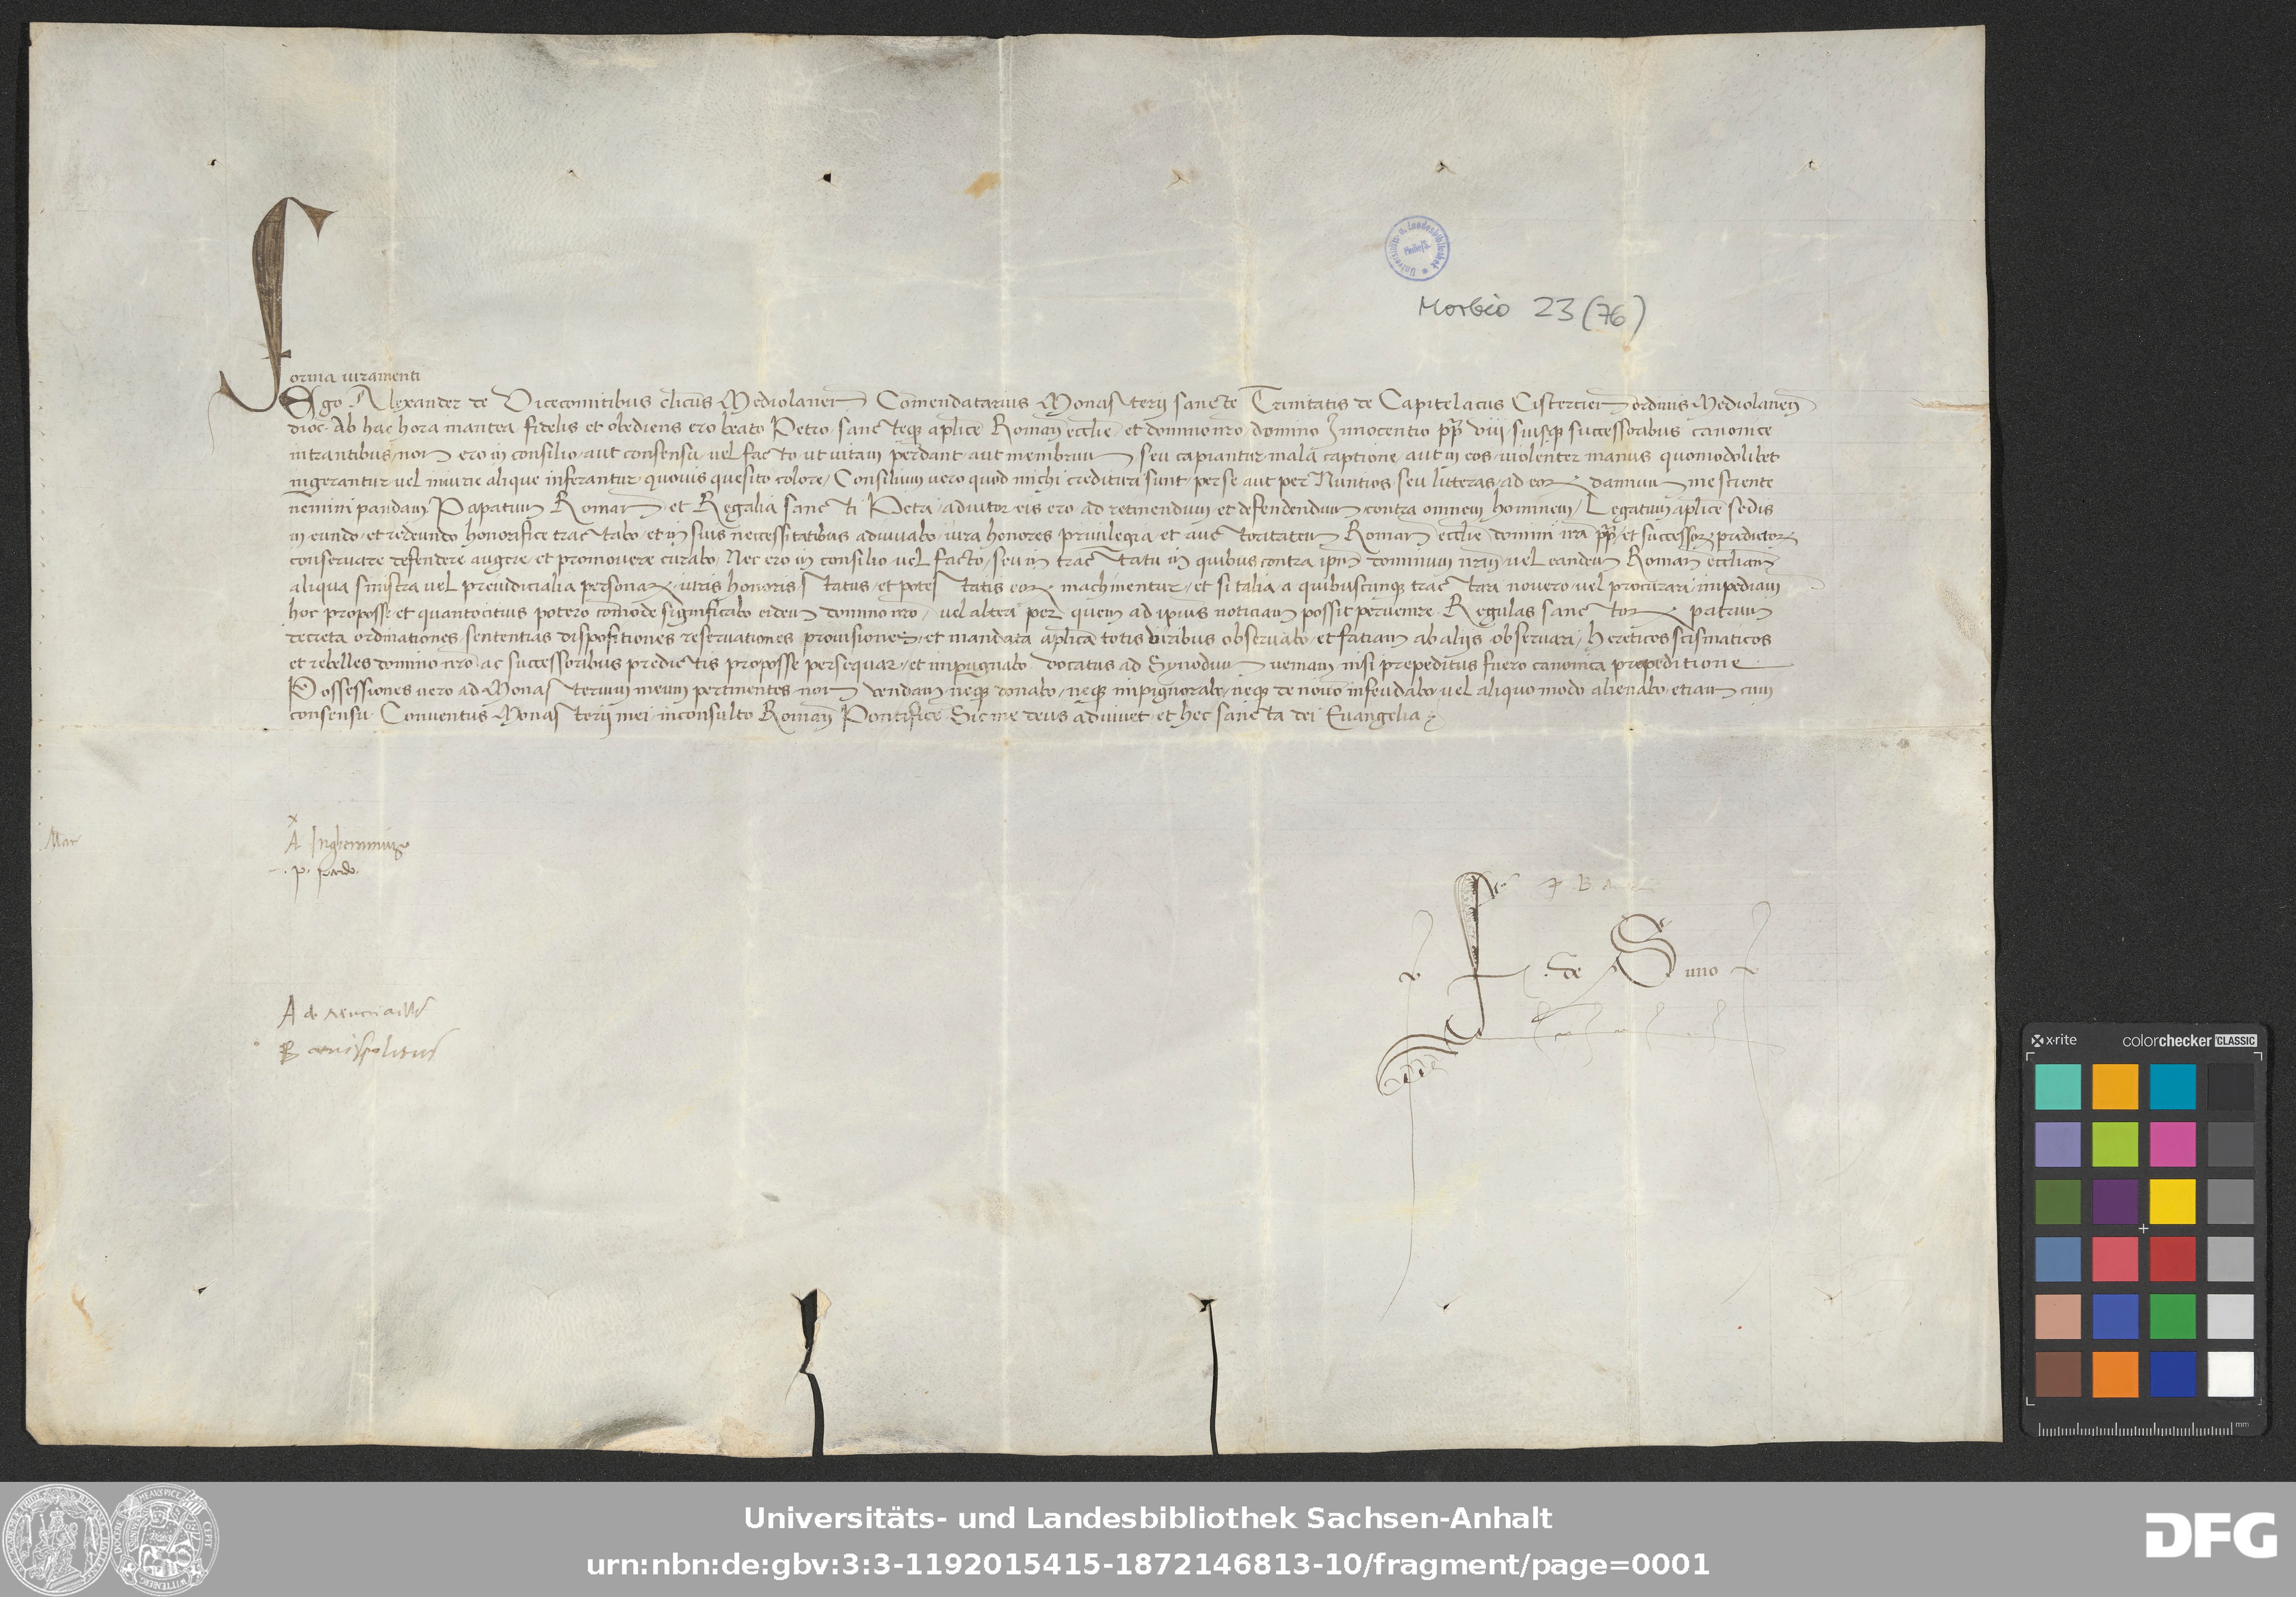 Morbio 23 (76)
Forma iuramenti
Ego Alexander de Vicecomitibus clicus Mediolanen Comendatarius Monasterii sancte Trinitatis de Capitelacus Cistercien ordinis Mediolanen
dioc. Ab hac hora inantea fidelis et obediens ero beato Petro sancteque aplice Roman ecclie et domino nro domino Innocentio pp viij suisque successoribus canonice
intrantibus non ero in consilio aut consensu vel facto ut vitam perdant aut membrum seu capiantur mala captione aut in eos violenter manus quomodolibet
ingerantur vel iniurie alique inferantur quovis quesito colore / Consilium vero quod michi credituri sunt per se aut per Nuntios seu litteras ad eor dannum me sciente
nemini pandam Papatum Roman et Regalia sancti Petri adiutor eis ero ad retinendum et defendendum contra omnem hominem / Legatum aplice sedis
in eundo et redeundo honorifice tractabo et in suis neccessitatibus adiuvabo iura honores privilegia et auctoritatem Roman ecclie domini nri pp et successor predictor
conservare defendere augere et promovere curabo / Nec ero in consilio vel facto seu in tractatu in quibus contra ipm dominum nrm vel eandem Roman eccliam
aliqua sinistra vel preiudicialia personar iuris honoris status et potestatis eor machinentur et si talia a quibuscunque tractari novero vel procurari impediam
hoc proposse et quantocitius potero comode significabo eidem domino nro vel alteri per quem ad ipius noticiam possit pervenire Regulas sanctor patrum
decreta ordinationes sententias dispositiones reservationes provisiones et mandata aplica totis viribus observabo et fatiam ab aliis observari / Hereticos scismaticos
et rebelles domino nro ac successoribus predictis proposse persequar et impugnabo Vocatus ad Synodum veniam nisi prepeditus fuero canonica prepeditione
Possessiones vero ad Monasterium meum pertinentes non vendam neque donabo neque impignorabo neque de novo infeudabo vel aliquo modo alienabo etiam cum
consensu Conventus Monasterii mei inconsulto Roman Pontifice Sic me deus adiuvet et hec sancta dei Evangelia
Mar
x
A Ingheramius
p. pardo
de Suno
A de
B
x-rite colorchecker CLASSIC
mm
Universitäts- und Landesbibliothek Sachsen-Anhalt
urn:nbn:de:gbv:3:3-1192015415-1872146813-10/fragment/page=0001
DFG